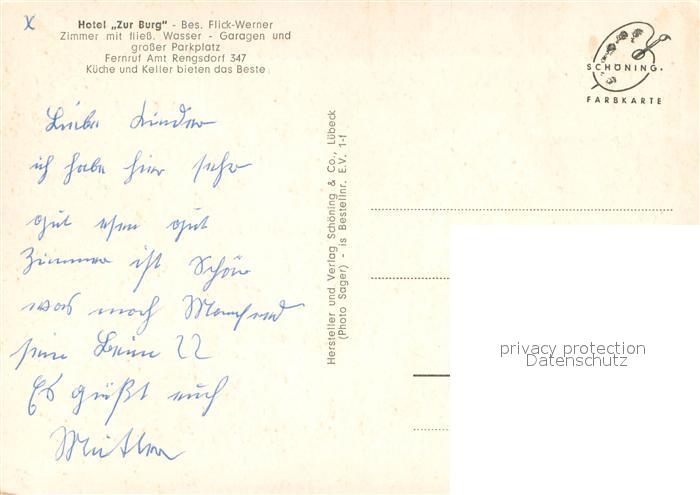 x
Hotel „Zur Burg" - Bes. Flick-Werner
Zimmer mit fließ. Wasser - Garagen und
großer Parkplatz
Fernruf Amt Rengsdorf 347
Küche und Keller bieten das Beste
SCHÖNING.
FARBKARTE
Liebe Kinder
ich habe hier sehr
gut esen gut
Zimmer ist Schön
was mach Manfred
sein Bein ??
Es grüßt euch
Mutter
Hersteller und Verlag Schöning & Co., Lübeck
(Photo Sager) - is Bestellnr. E.V. 1-f
privacy protection
Datenschutz